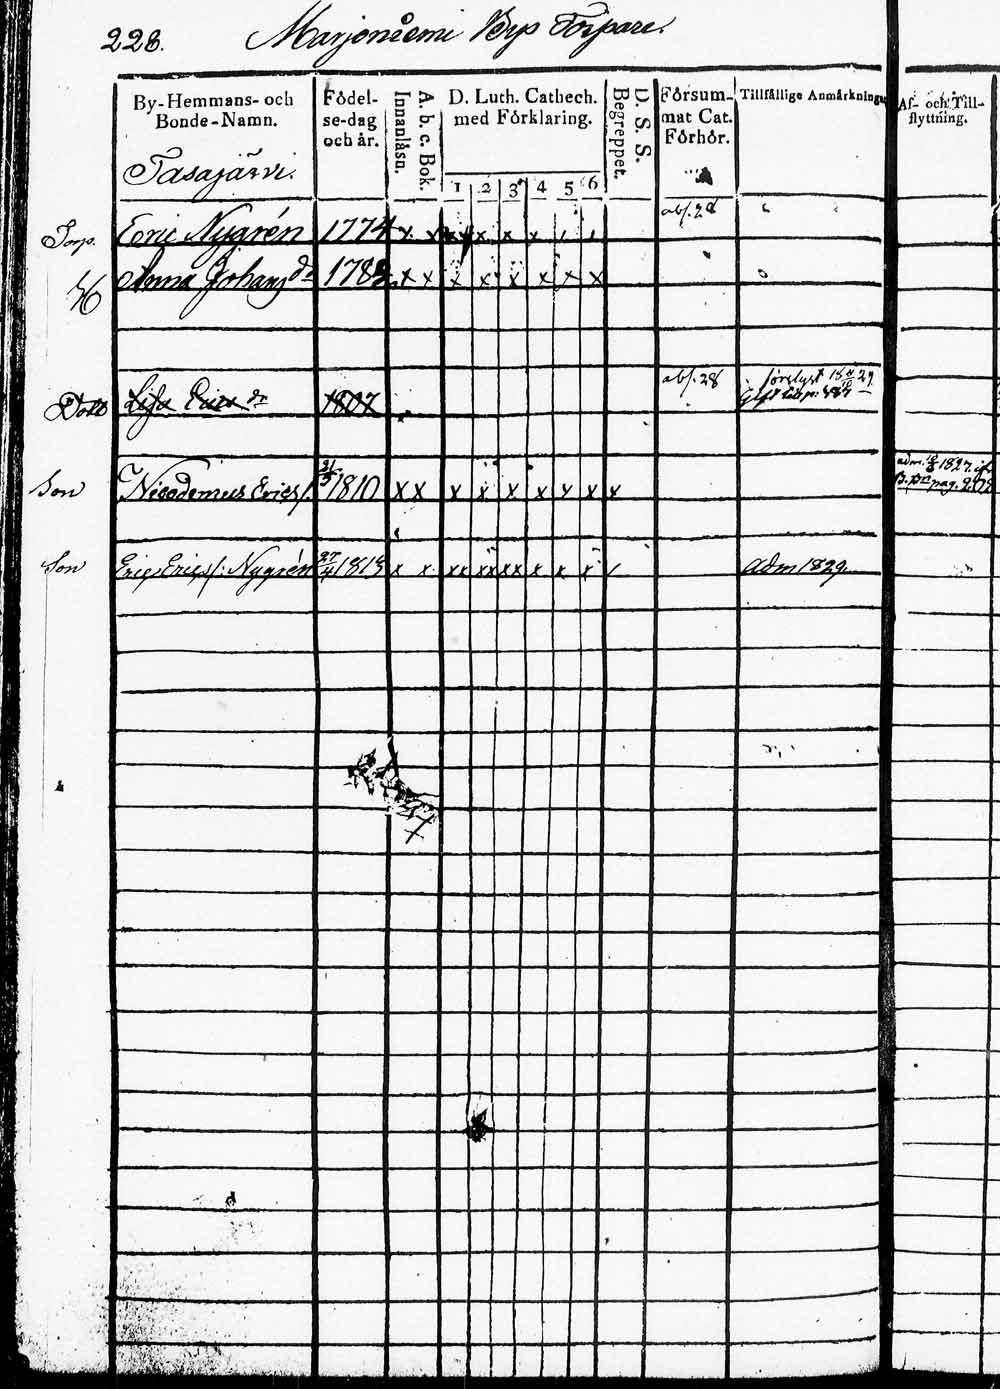 228. Marjoniemi Bys Torpare.
By-Hemmans- och Bonde-Namn.
Födel-se-dag och år.
A. b. c. Bok. Innanläsn.
D. Luth. Cathech. med Förklaring.
1 2 3 4 5 6
D. S. S. Begreppet.
Försum-mat Cat. Förhör.
Tillfällige Anmärkningar
Af- och Till-flyttning.
Tasajärvi.
Torp. Eric Nygrén 1774 x x x x x x x abs. 28
H Anna Johans dr 1783 x x x x x x x x
Dott Lisa Erics dr 1807 abs. 28
Son Nicodemus Erics 21/5 1810 x x x x x x x x x adm. 1827. B. pag. 202
Son Eric Erics. Nygrén 27/4 1813 x x xx xx xx x x x / adm 1829